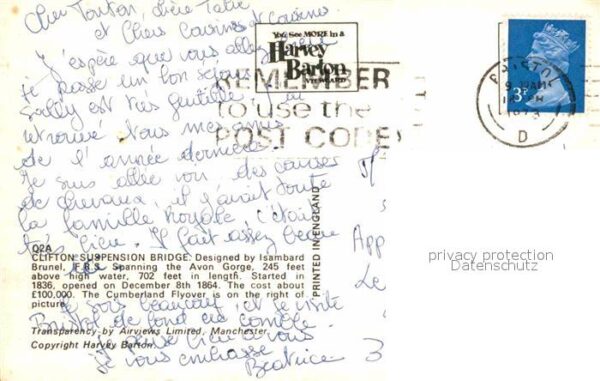 Cher Tonton, chère Tatie
et Chers Cousins et cousines
J'espère que vous allez bien
Je passe un bon séjour
Sally est très gentille. J'ai
retrouvé tous mes amis
de l'année dernière.
Je suis allée voir des courses
de chevaux, il y avait toute
la famille royale, c'était
très bien. Il fait assez beau
Je sors beaucoup, et je visite
Bristol de fond en comble.
Je pense bien à vous
je vous embrasse
Beatrice
You See MORE in a
Harvey
Barton
VIEWCARD
REMEMBER
to use the
POST CODE
BRISTOL
1973
D
3P
PRINTED IN ENGLAND
Q2A
CLIFTON SUSPENSION BRIDGE. Designed by Isambard
Brunel, F.R.S. Spanning the Avon Gorge, 245 feet
above high water, 702 feet in length. Started in
1836, opened on December 8th 1864. The cost about
£100,000. The Cumberland Flyover is on the right of
picture.
Transparency by Airviews Limited, Manchester
Copyright Harvey Barton
App
Le
3
privacy protection
Datenschutz